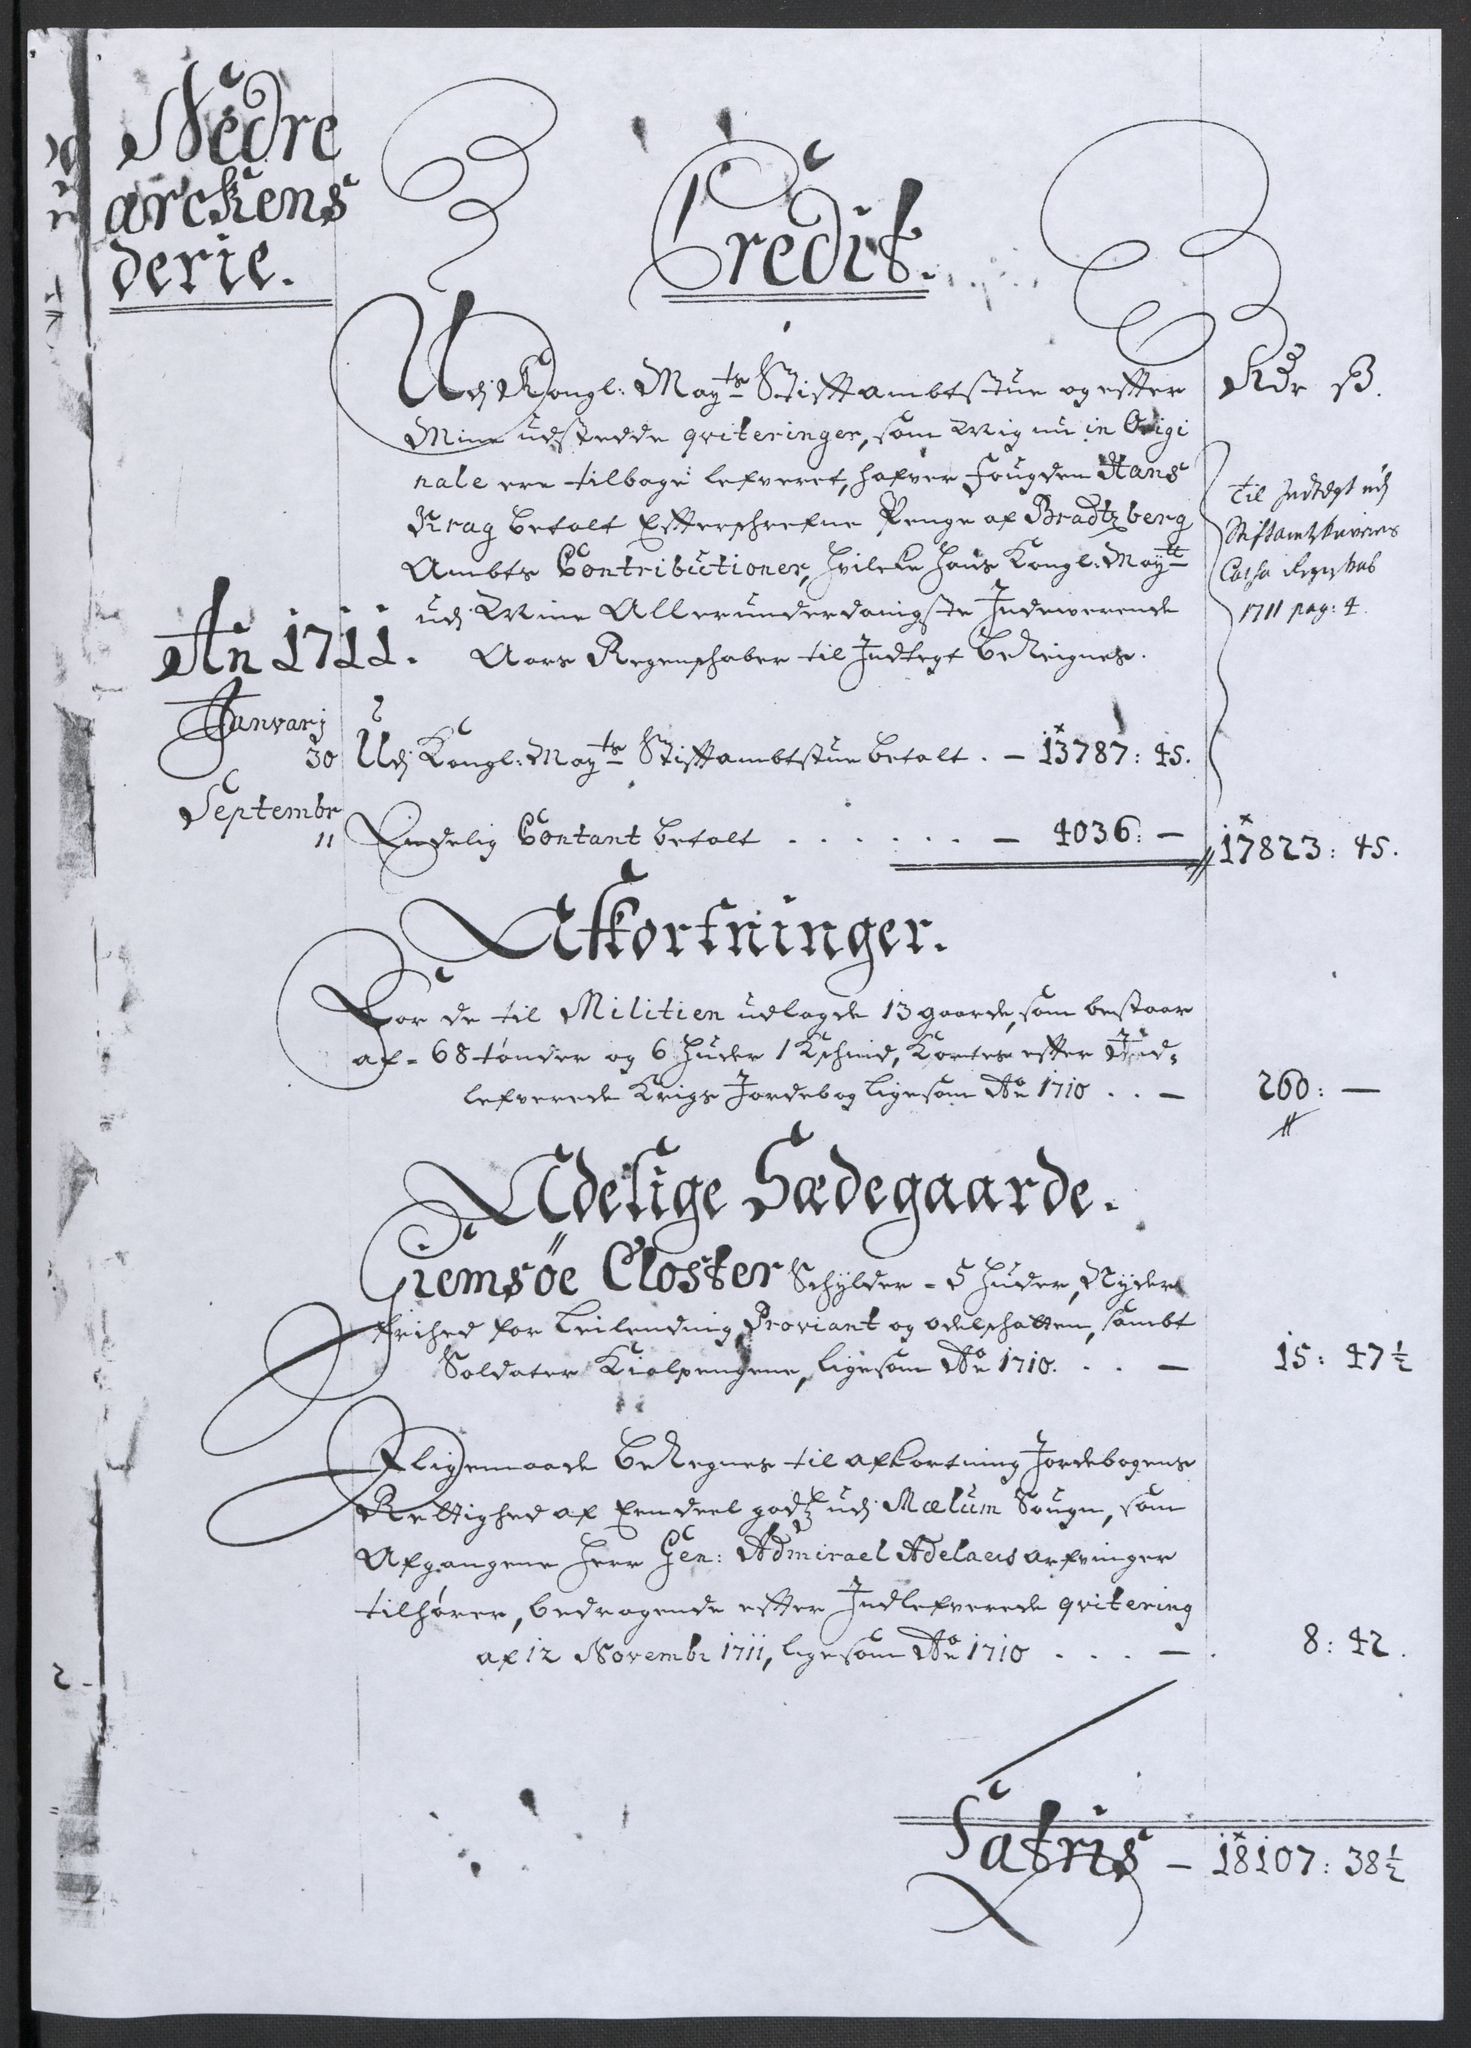 Nedre
arckens
derie.
Credit.
Udj Kongl: Mayts Stifftambtstue og effter
Mine udstedde qviteringer, som Mig nu in Origi
nale ere tilbage lefveret, hafver fougden Hans
Krag betalt Effterschrefne Penge af Bradtzberg
Ambts Contributioner, hvilcke hans Kongl: Maytt
udj Mine Allerunderdanigste Indeværende
Aars Regenschaber til Indtegt beReignes.
Rdr ß.
til Indtegt udj
Stiftambtskriverens
Cassa Regnskab
1711 pag: 4.
An 1711.
Janvarj
30 Udj Kongl: Mayts Stifftambtstue betalt. – 13787: 45.
Septembr
11 Endelig Contant betalt . . . . . . – 4036: – 17823: 45.
Afkortninger.
For de til Militien udlagde 13 gaarde, som bestaar
af - 68 tønder og 6 huder 1 Kschind, Kortes effter Ind-
lefverede Krigs Jordebog ligesom Ao 1710 . . – 260: –
Adelige Sædegaarde.
Giemsøe Closter Schylder - 5 huder, Nyder
frihed for Leilending Proviant og odelschatten, sambt
Soldater Kiolpengene, ligesom Ao 1710. . . – 15: 47½
Iligemaade beRegnes til afkortning Jordebogens
Rettighed af Eendeel godtz udj Mælum Sougn, som
Afgangene Herr Gen: Admirael Adelaers arfvinger
tilhører, bedragende effter Indlefverede qvitering
af 12 Novembr 1711, ligesom Ao 1710 . . . – . 8: 42.
Latris – 18107: 38½